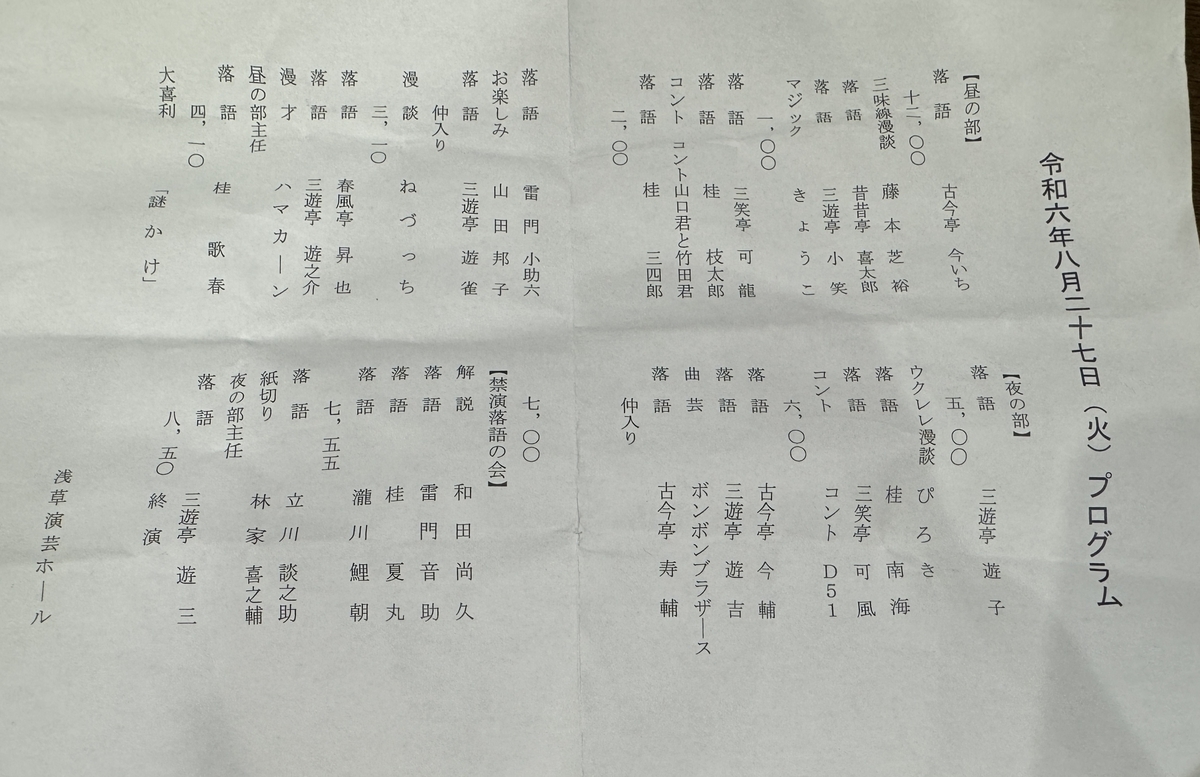 令和六年八月二十七日（火）プログラム
【昼の部】
落語 古今亭 今いち
十二，〇〇
三味線漫談 藤本芝裕
落語 昔昔亭 喜太郎
落語 三遊亭 小笑
マジック きょうこ
一，〇〇
落語 三笑亭 可龍
落語 桂 枝太郎
コント コント山口君と竹田君
落語 桂 三四郎
二，〇〇
落語 雷門 小助六
お楽しみ 山田邦子
落語 三遊亭 遊雀
仲入り
漫談 ねづっち
三，一〇
落語 春風亭 昇也
落語 三遊亭 遊之介
漫才 ハマカーン
昼の部主任
落語 桂 歌春
四，一〇
大喜利 「謎かけ」
【夜の部】
落語 三遊亭 遊子
五，〇〇
ウクレレ漫談 ぴろき
落語 桂 南海
落語 三笑亭 可風
コント コント D51
六，〇〇
落語 古今亭 今輔
落語 三遊亭 遊吉
曲芸 ボンボンブラザース
落語 古今亭 寿輔
仲入り
七，〇〇
【禁演落語の会】
解説 和田尚久
落語 雷門音助
落語 桂 夏丸
落語 瀧川鯉朝
七，五五
落語 立川談之助
紙切り 林家喜之輔
夜の部主任
落語 三遊亭 遊三
八，五〇 終演
浅草演芸ホール